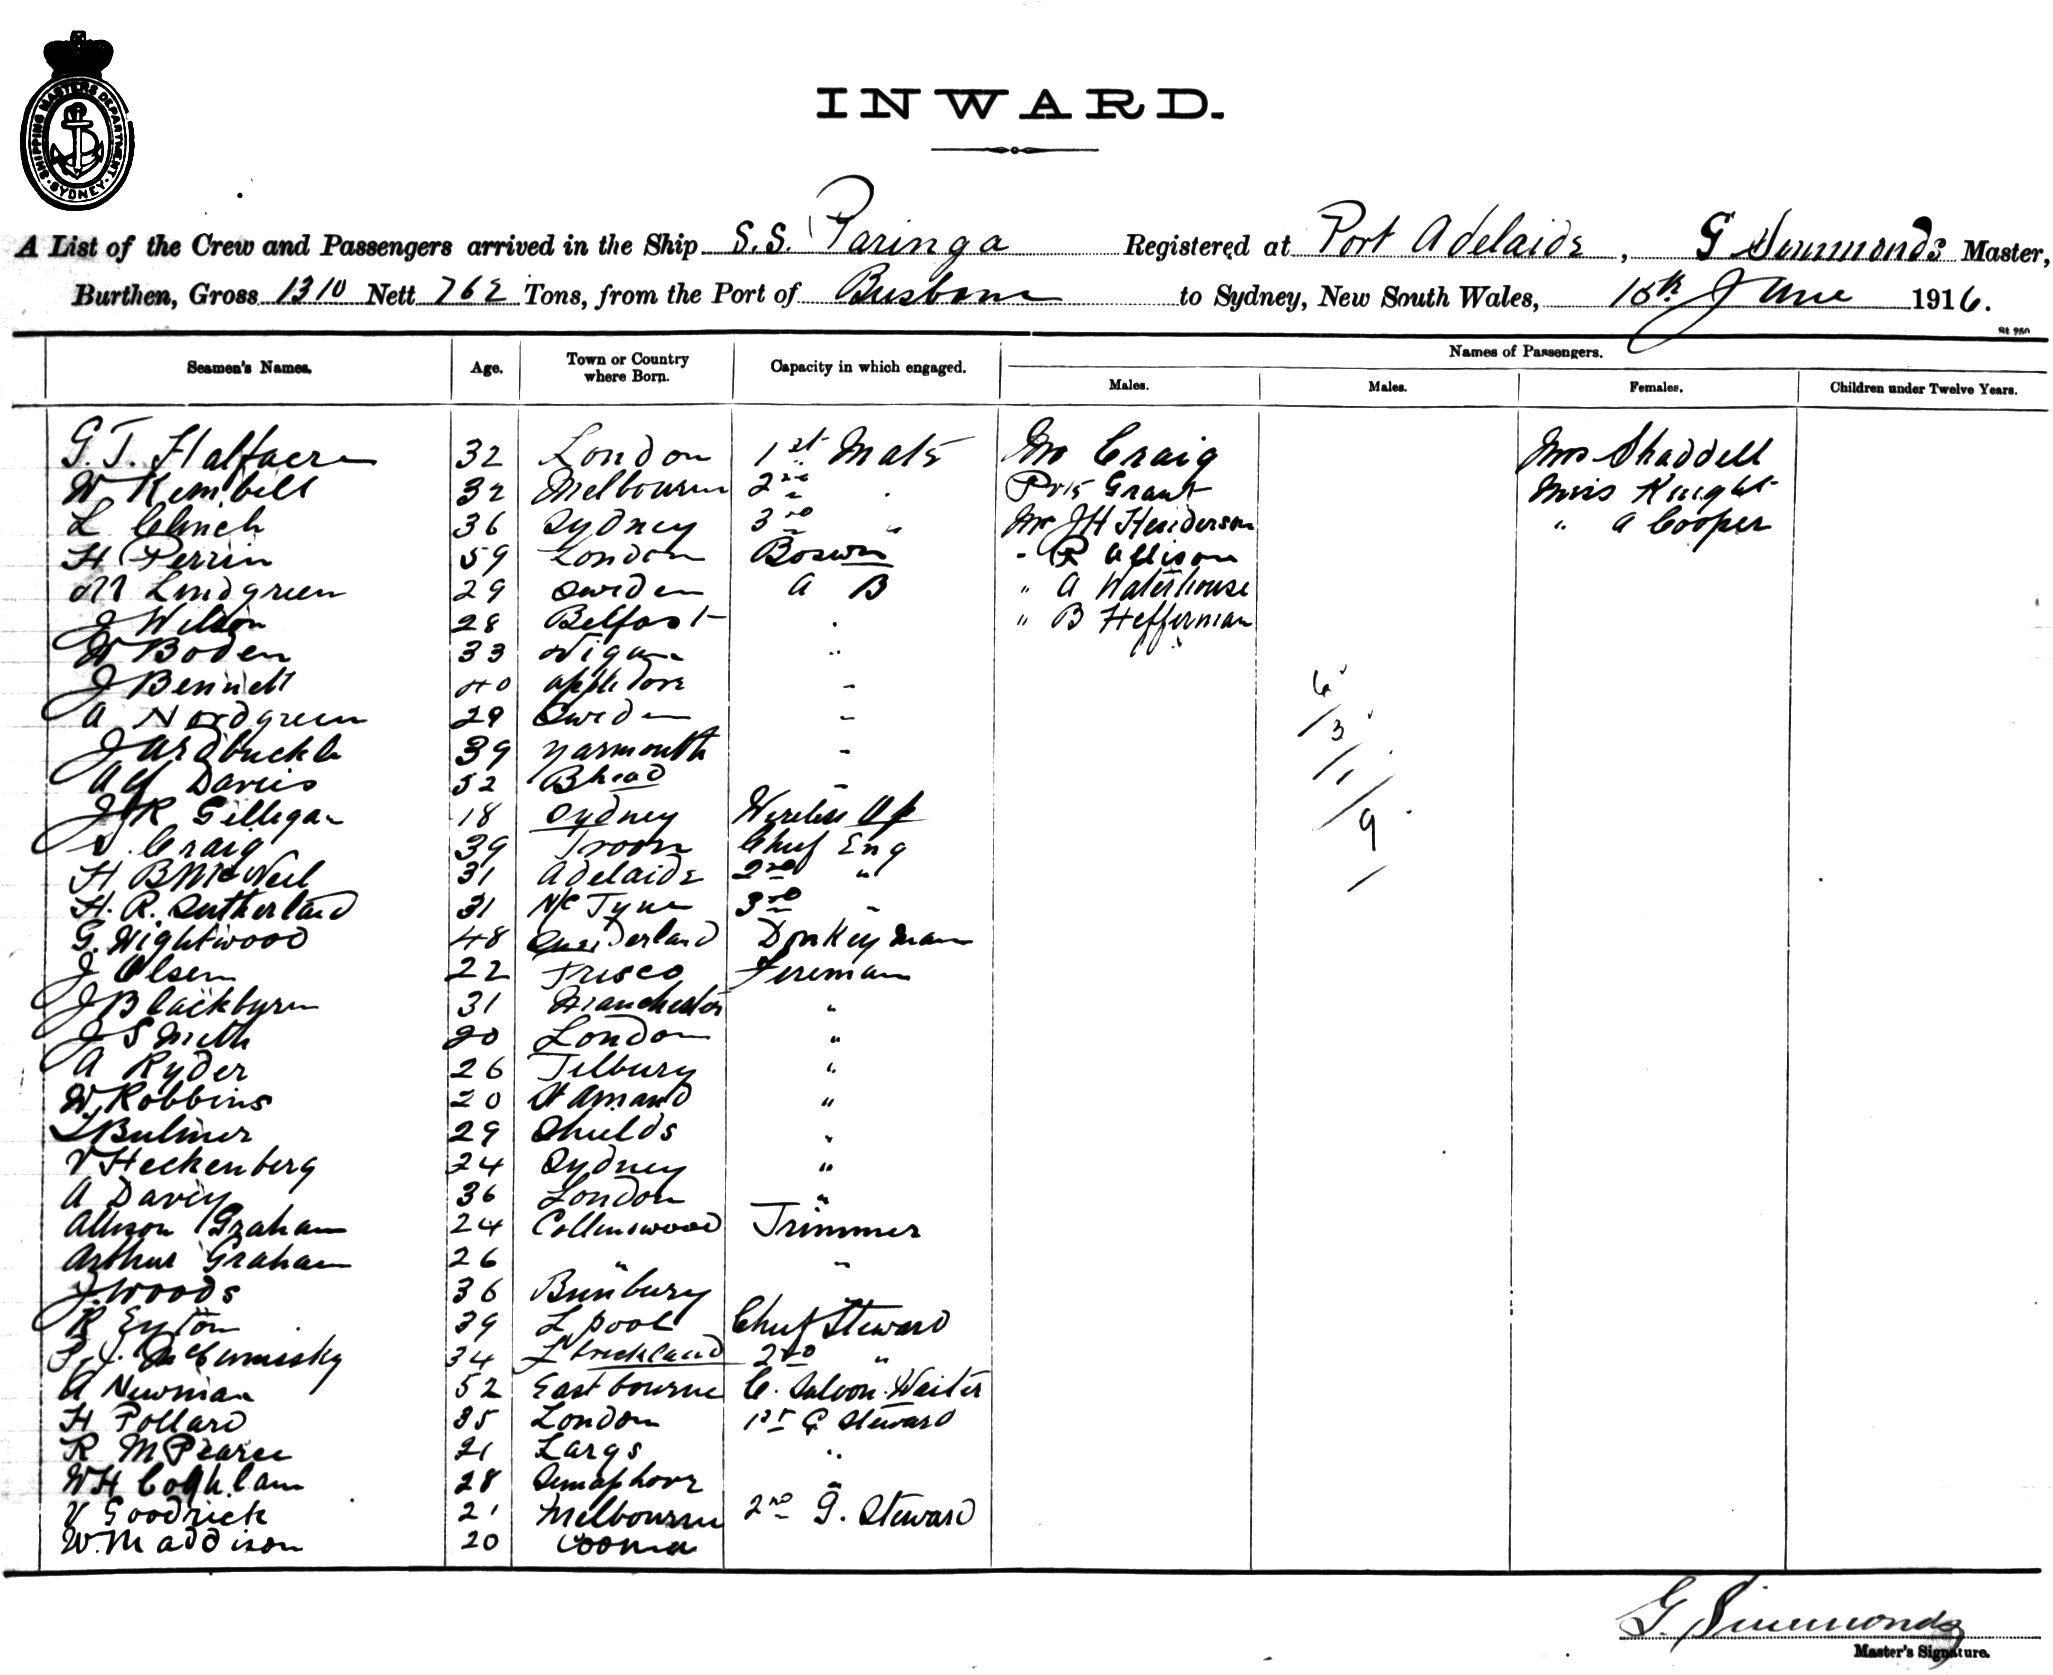 SHIPPING MASTERS DEPARTMENT. SYDNEY
INWARD.
A List of the Crew and Passengers arrived in the Ship S.S. Paringa Registered at Port Adelaide, G Simmonds Master,
Burthen, Gross 1310 Nett 762 Tons, from the Port of Brisbane to Sydney, New South Wales, 18th June 1916.
St 950
Seamen's Names. Age. Town or Country where Born. Capacity in which engaged. Names of Passengers.
Males. Males. Females. Children under Twelve Years.
G. T. Halfacre 32 London 1st Mate Mr Craig Mrs Shaddell
W Kembell 32 Melbourne 2nd " Pvt Grant Miss Knight
L Clinch 36 Sydney 3rd " Mr J H Henderson " A Cooper
H Perrin 59 London Boswn " R Allison
M Lindgreen 29 Sweden A B " A Waterhouse
J Wilson 28 Belfast " " B Hefferman
W Boden 33 Wigan "
J Bennett 40 Appledore " 6
A Nordgreen 29 Sweden " 3
J Ardbuckle 39 Yarmouth " 1
Alf Davies 52 Bhead "
J K Gilligan 18 Sydney Wireless Op 9
S. Craig 39 Troon Chief Eng
H B McNeil 31 Adelaide 2nd "
H. R. Sutherland 31 N/C Tyne 3rd "
G. Wightwood 48 Sunderland Donkeyman
J Olsen 22 Frisco Fireman
J Blackburn 31 Manchester "
J Smith 20 London "
A Ryder 26 Tilbury "
W Robbins 20 St Arnaud "
T Bulmer 29 Shields "
V Heckenberg 24 Sydney "
A Davey 36 London "
Allison Graham 24 Collinswood Trimmer
Arthur Graham 26 " "
J. Woods 36 Bunbury "
R Eyton 39 L'pool Chief Steward
34 2nd "
A Newman 52 Eastbourne C. Saloon Waiter
H Pollard 35 London 1st G Steward
R M Pearce 21 Largs "
W H Coghlan 28 Semaphore "
V Goodrick 21 Melbourne 2nd G. Steward
W. Maddison 20 Cooma
G. Simmonds
Master's Signature.